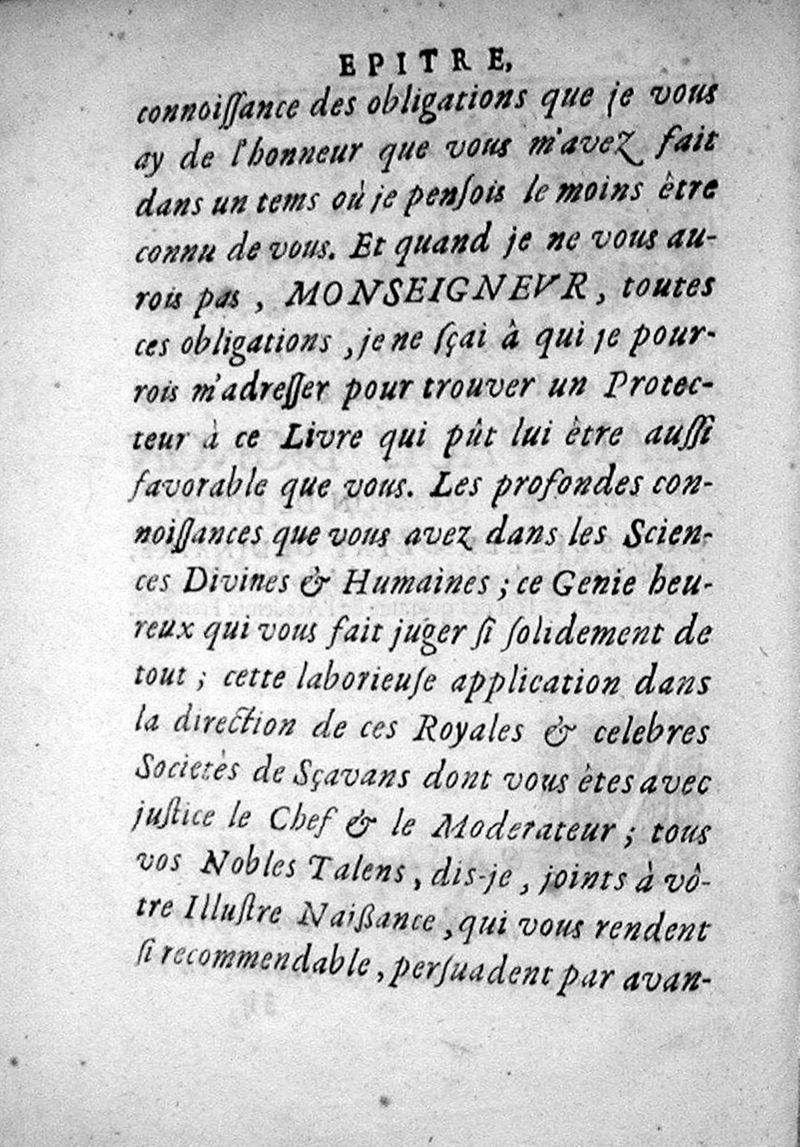 EPITRE,
connoiſſance des obligations que je vous
ay de l'honneur que vous m'avez fait
dans un tems où je penſois le moins être
connu de vous. Et quand je ne vous au-
rois pas, MONSEIGNEVR, toutes
ces obligations, je ne ſçai à qui je pour-
rois m'adreſſer pour trouver un Protec-
teur à ce Livre qui pût lui être auſſi
favorable que vous. Les profondes con-
noiſſances que vous avez dans les Scien-
ces Divines & Humaines; ce Genie heu-
reux qui vous fait juger ſi ſolidement de
tout; cette laborieuſe application dans
la direction de ces Royales & celebres
Societès de Sçavans dont vous ètes avec
juſtice le Chef & le Moderateur; tous
vos Nobles Talens, dis-je, joints à vô-
tre Illuſtre Naißance, qui vous rendent
ſi recommendable, perſuadent par avan-